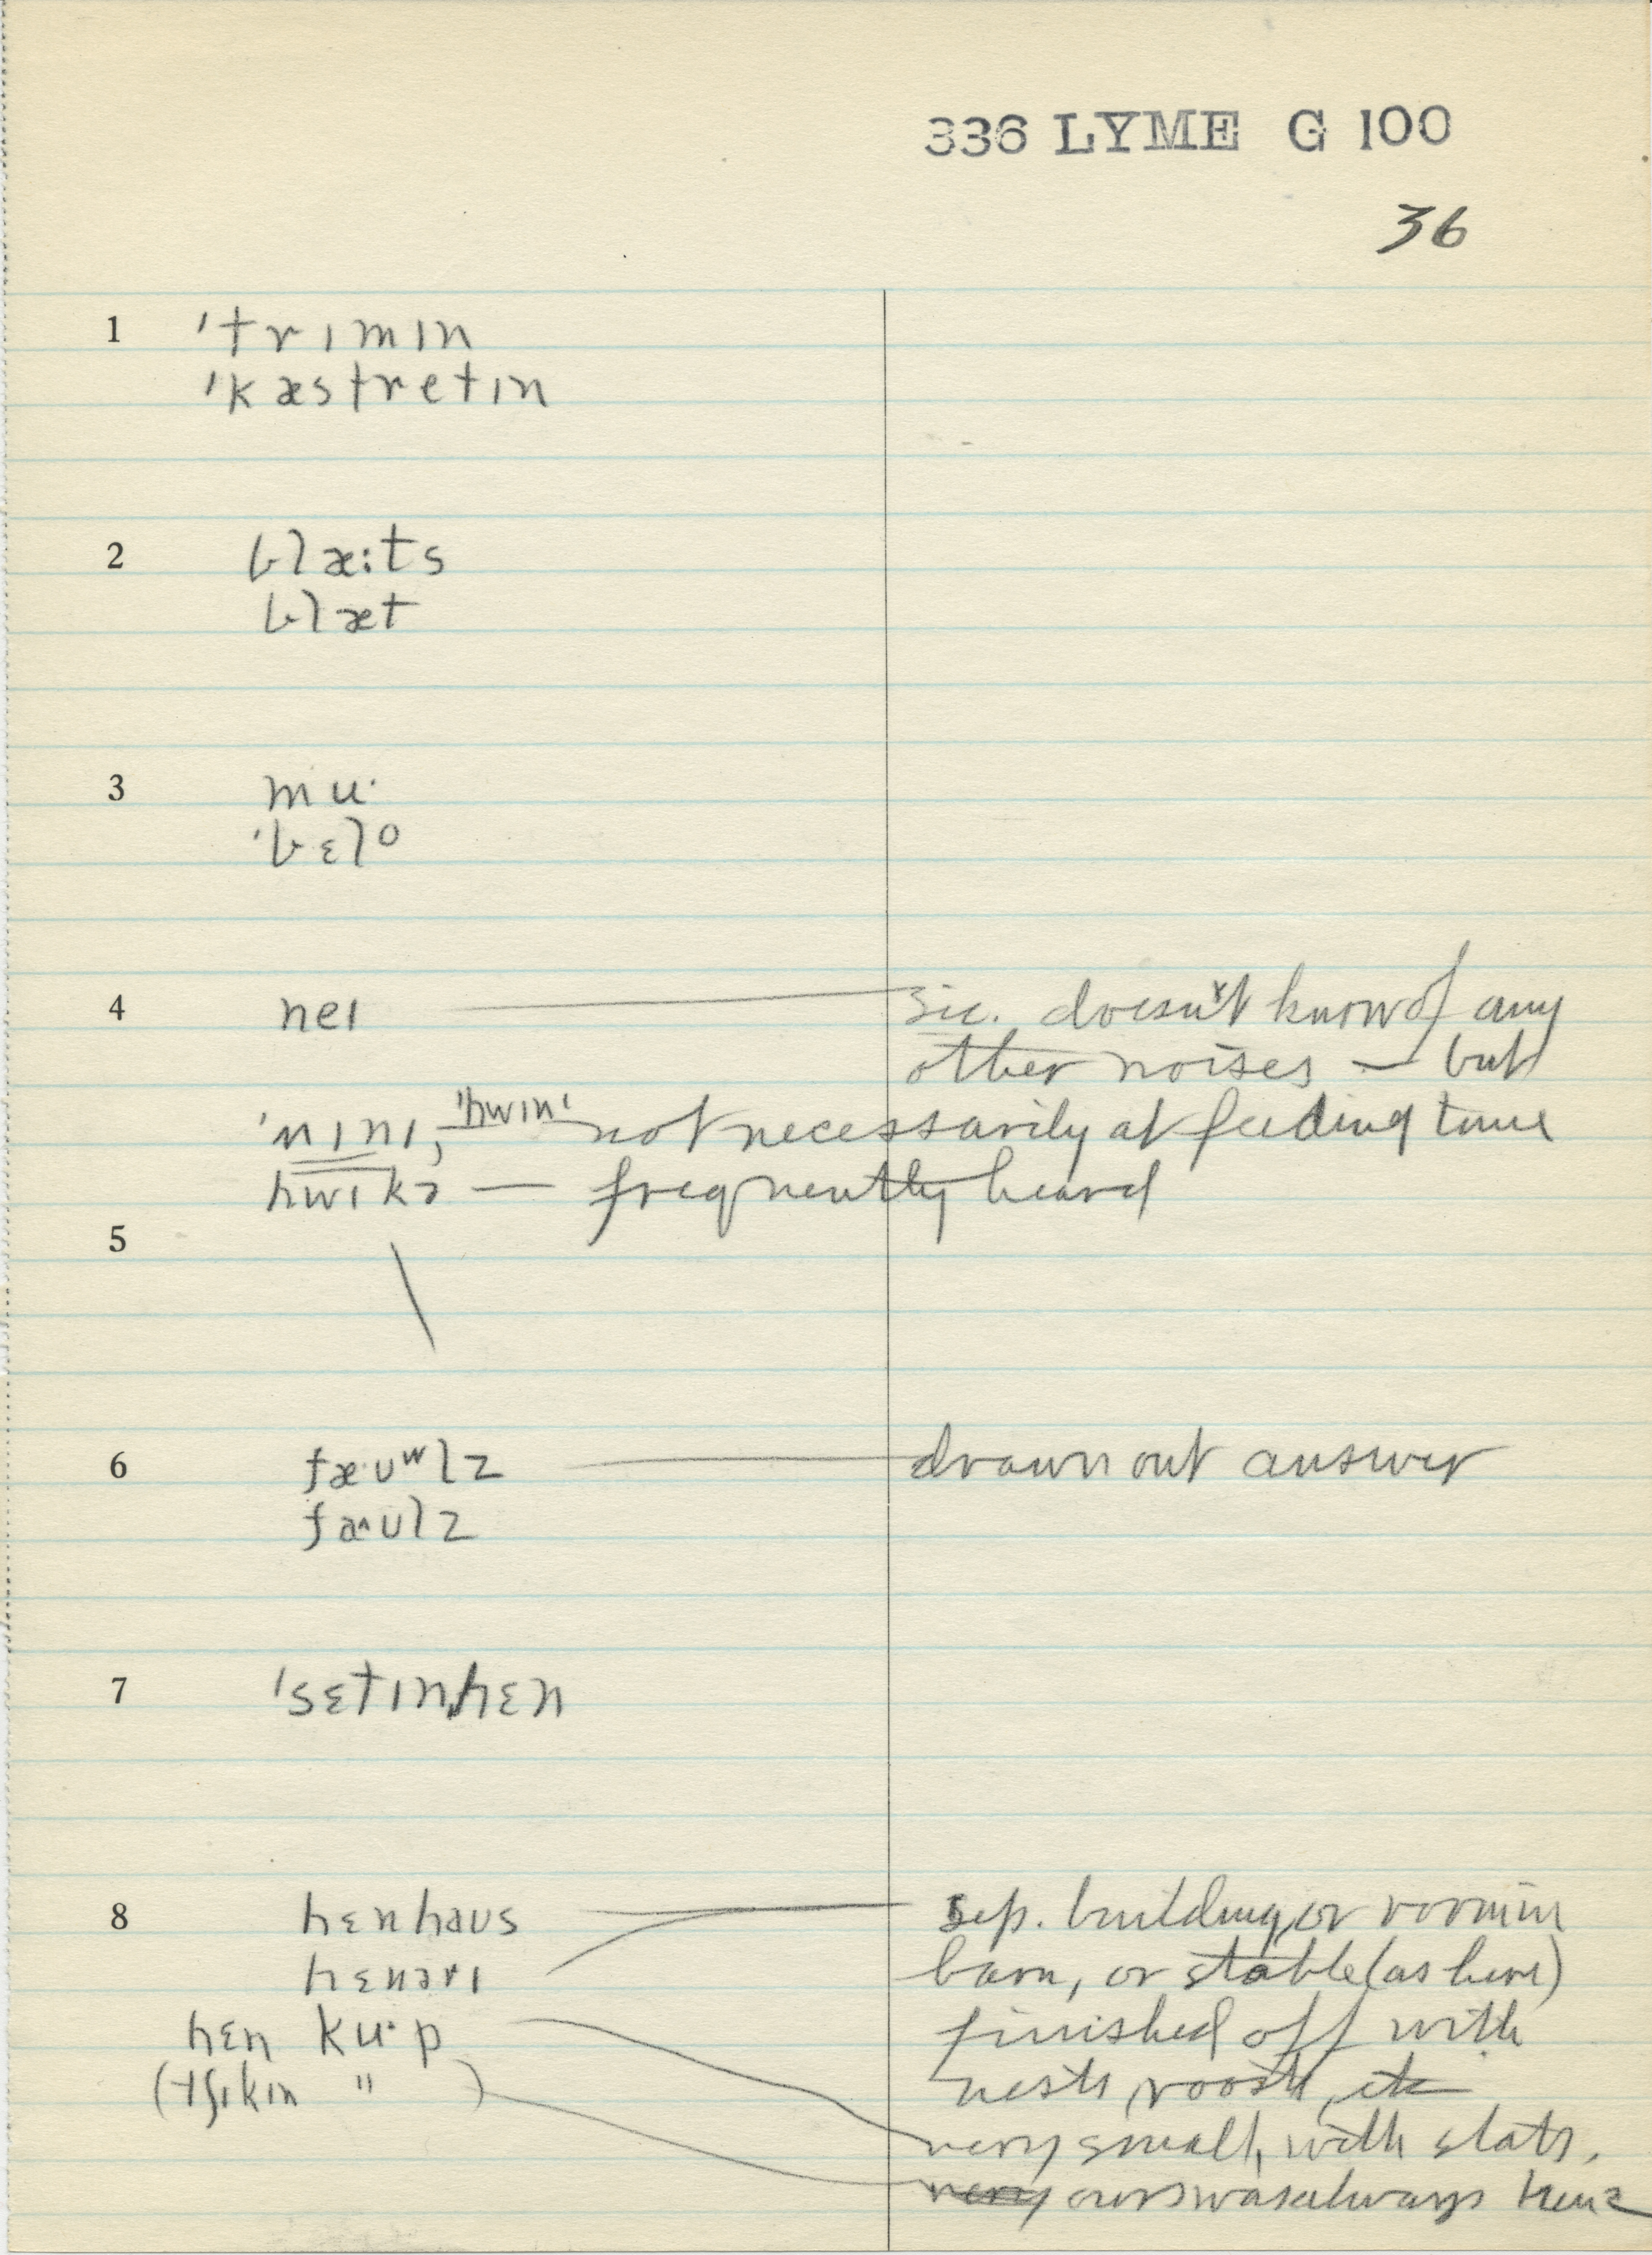 336 LYME G 100
36
1 'trɪmɪn
'kæstretɪn
2 blæ:ts
blæt
3 mu·
'bɛlo
4 neɪ — sic. doesn't know of any
other noises — but
'nɪnɪ, 'hwɪnɪ not necessarily at feeding time
hwɪkɚ — frequently heard
5 \
6 fæ·ʊʷlz — drawn out answer
faʌʊlz
7 'sɛtɪn,hɛn
8 hɛnhaus sep. building, or room in
hɛnərɪ barn, or stable (as here)
hɛn ku·p finished off with
(tʃɪkɪn " ) nests, roosts, etc
very small, with slats.
ours was always hens